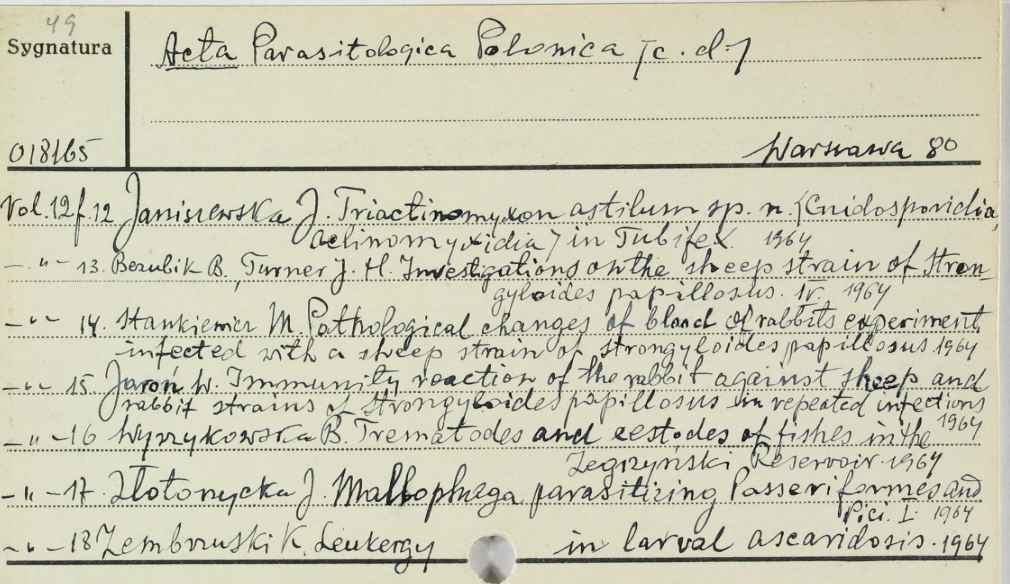 49
Sygnatura
Acta Parasitologica Polonica [c.d.]
018165
Warszawa 80
Vol. 12 f. 12 Janiszewska J. Triactinomyxon astilum sp. n. (Cnidosporidia,
Actinomyxidia) in Tubifex. 1964
-"- 13. Bezubik B., Turner J. H. Investigations on the sheep strain of Stron-
gyloides papillosus. IV. 1964
-"- 14. Stankiewicz M. Pathological changes of blood of rabbits experiment.
infected with a sheep strain of Strongyloides papillosus 1964
-"- 15. Jaroń W. Immunity reaction of the rabbit against sheep and
rabbit strains of Strongyloides papillosus in repeated infections
1964
-"- 16 Wyrzykowska B. Trematodes and cestodes of fishes in the
Zegrzyński Reservoir. 1964
-"- 17. Złotorzycka J. Mallophaga parasitizing Passeriformes and
Pici. I. 1964
-"- 18 Zembrzuski K. Leukergy in larval ascaridosis. 1964